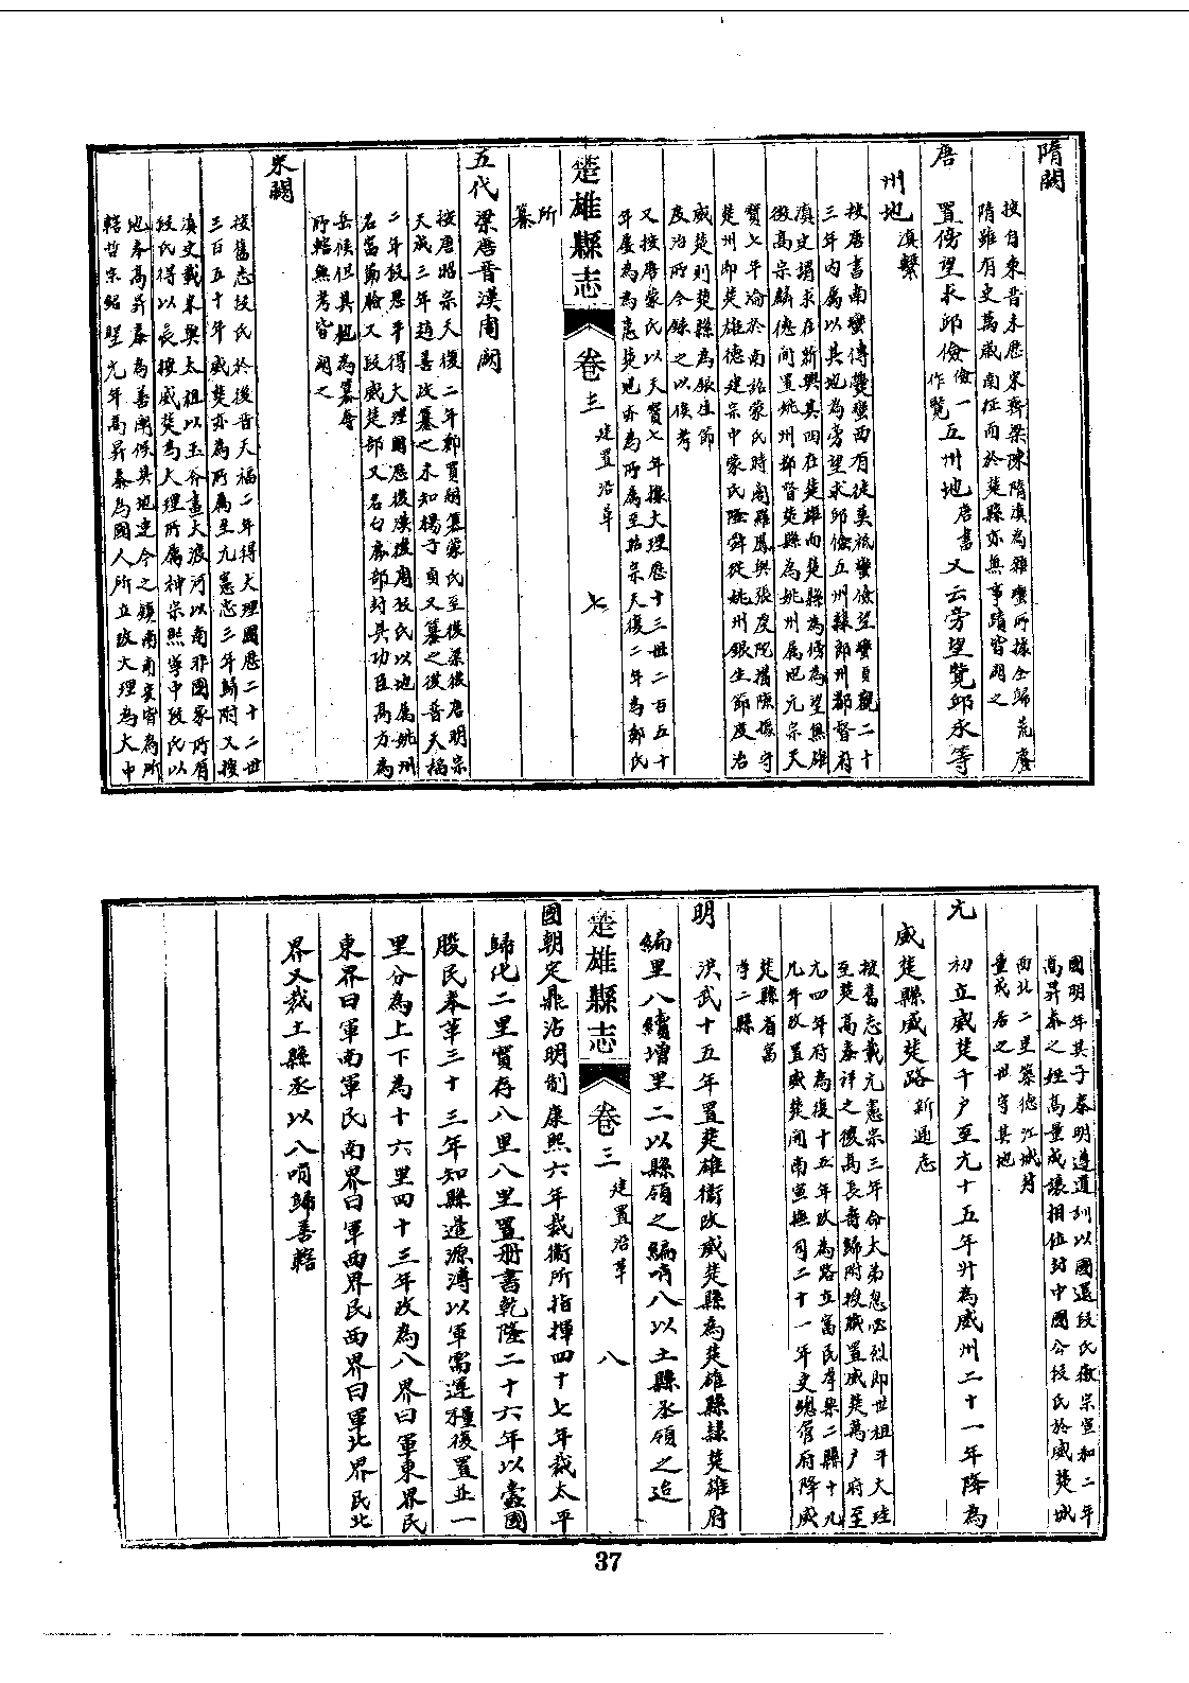 隋闕
按自東晉末歷宋齊梁陳隋滇為雜蠻所據全歸荒廢
隋雖有史萬歲南征而於楚縣亦無事蹟皆闕之
唐　置傍望求邱儉儉一作覽五州地唐書又云旁望覽邱永等
州地滇繫
按唐書南蠻傳爨蠻西有徒莫祗蠻儉望蠻貞觀二十
三年內屬以其地為旁望求邱儉五州隸郎州都督府
滇史謂求在新興其四在楚雄而楚縣為傍為望無疑
徵高宗麟德間置姚州都督楚縣為姚州屬地元宗天
寶七年淪於南詔蒙氏時閣羅鳳與張虔陀搆隙據守
楚州即楚雄德建宗中蒙氏隆舜從姚州銀生節度治
威楚則楚縣為銀生節
度治所今錄之以俟考
又按唐蒙氏以天寶七年據大理歷十三世二百五十
年屢為為患楚地亦為所屬至昭宗天復二年為鄭氏
楚雄縣志　卷三　建置沿革　七
所
纂
五代　梁唐晉漢周闕
按唐昭宗天復二年鄭買嗣纂蒙氏至後梁後唐明宗
天成三年趙善政纂之未知楊子貞又纂之後晉天福
二年段思平得大理國歷後漢後周段氏以地屬姚州
名當筯臉又段威楚部又名白鹿部封其功臣高方為
岳侯但其地為纂奪
所轄無考皆闕之
宋闕
按舊志段氏於後晉天福二年得大理國歷二十二世
三百五十年威楚亦為所屬至元憲宗三年歸附又按
滇史載宋興太祖以玉斧畫大渡河以南非國家所有
段氏得以長據威楚為大理所屬神宗熙寧中段氏以
地奉高昇泰為善闡侯其地連今之鎮南南安皆為所
轄哲宗紹聖元年高昇泰為國人所立改大理為大中
國明年其子泰明遵遺訓以國還段氏徽宗宣和二年
高昇泰之姪高量成讓相位封中國公段氏於威楚城
西北二里築德江城封
量成居之世守其地
元　初立威楚千戶至元十五年升為威州二十一年降為
威楚縣威楚路新通志
按舊志載元憲宗三年命太弟忽必烈即世祖平大理
至楚高泰祥之後高長壽歸附按威置威楚萬戶府至
元四年府為復十五年改為路立富民厚樂二縣十九
九年改置威楚開南宣撫司二十一年史總管府降威
楚縣省富
孝二縣
明　洪武十五年置楚雄衛改威楚縣為楚雄縣隸楚雄府
編里八續增里二以縣領之編哨八以土縣丞領之迨
楚雄縣志　卷三　建置沿革　八
國朝定鼎沿明制康熙六年裁衛所指揮四十七年裁太平
歸化二里實存八里八里置册書乾隆二十六年以蠹國
殷民奉革三十三年知縣遣源溥以軍需運糧復置並一
里分為上下為十六里四十三年改為八界曰軍東界民
東界曰軍南軍民南界曰軍西界民西界曰軍北界民北
界又裁土縣丞以八哨歸善轄
37